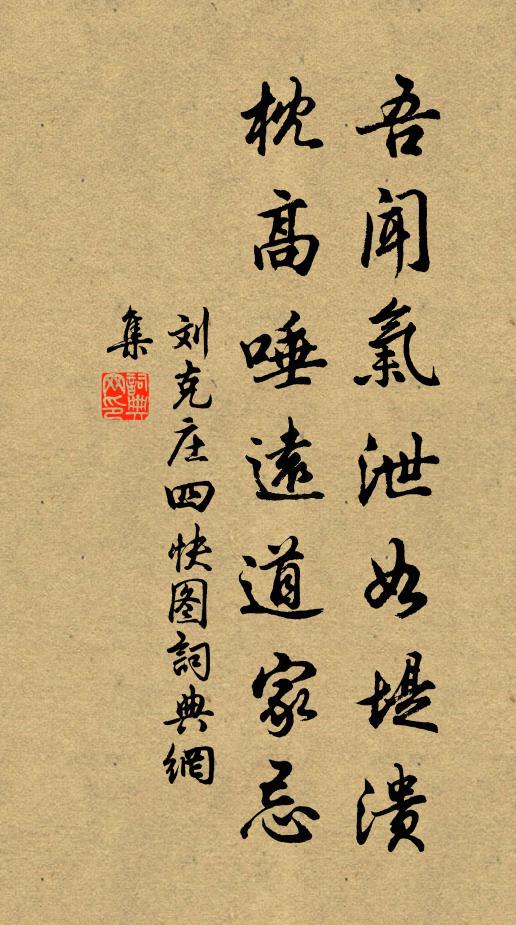 吾聞氣泄如堤潰
枕高唾遠道家忌
刘克庄四快图詞典網
集
詞典
网印